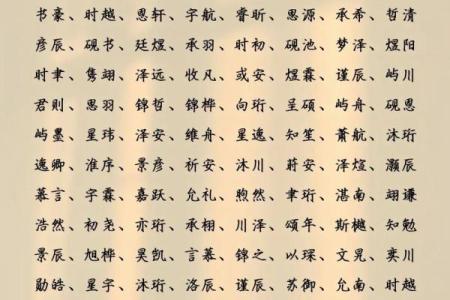 书豪、时越、思轩、宇航、睿昕、思源、承希、哲清
彦辰、砚书、廷煜、承羽、时初、砚池、梦泽、煜阳
时聿、隽翊、泽远、收凡、或安、煜霖、谨辰、屿川
君则、思羽、锦哲、锦桦、向珩、呈硕、屿舟、砚恩
屿墨、星玮、泽安、维舟、星逸、知笙、萧航、沐珩
逸卿、淮序、景彦、祈安、沐川、莳安、泽煊、灏辰
慕言、宇霖、嘉跃、允礼、煦然、聿珩、湛南、翊谦
浩然、初尧、亦珩、承栩、川泽、颂年、斯樾、知勉
景辰、旭桦、昊凯、言慕、锦之、以琛、文晃、奕川
勋皓、星宇、沐珩、洛辰、谨辰、苏御、允南、时越